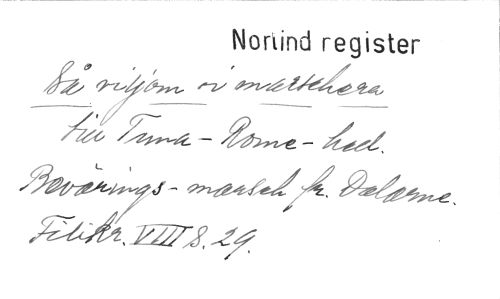 Norlind register
Så viljom vi marschera
till Tuna-Rome-hed.
Bevärings-marsch fr. Dalarne.
Filikr. VIII S. 29.